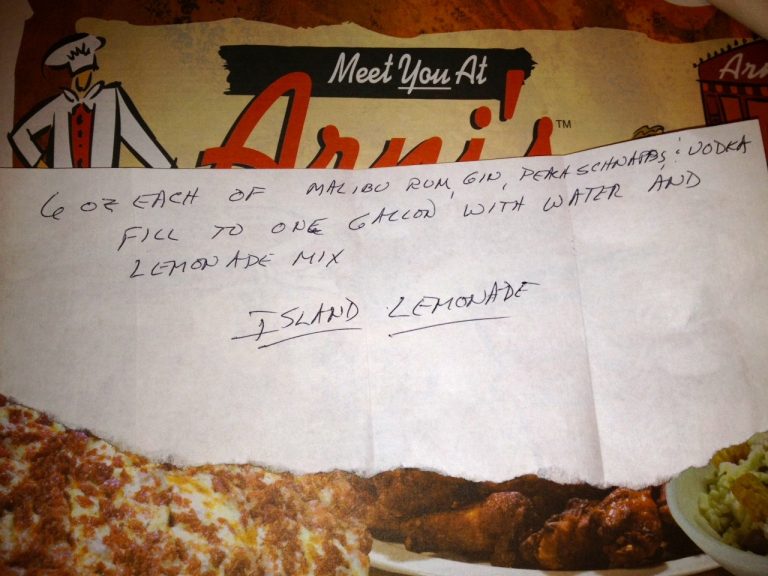 Meet You At
Arni's™
Arn
6 OZ EACH OF MALIBU RUM, GIN, PEACH SCHNAPPS, & VODKA
FILL TO ONE GALLON WITH WATER AND
LEMONADE MIX
ISLAND LEMONADE